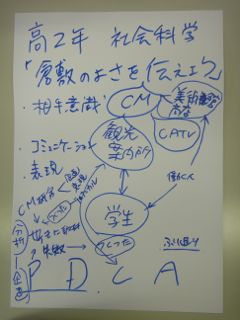 高2年 社会科学
「倉敷のよさを伝えよう
・相手意識
CM
・コミュニケーション
・表現
観光
案内所
CATV
CM研究
学生
働く人
つくった
失敗
分析
企画
ふり返り
P D C A